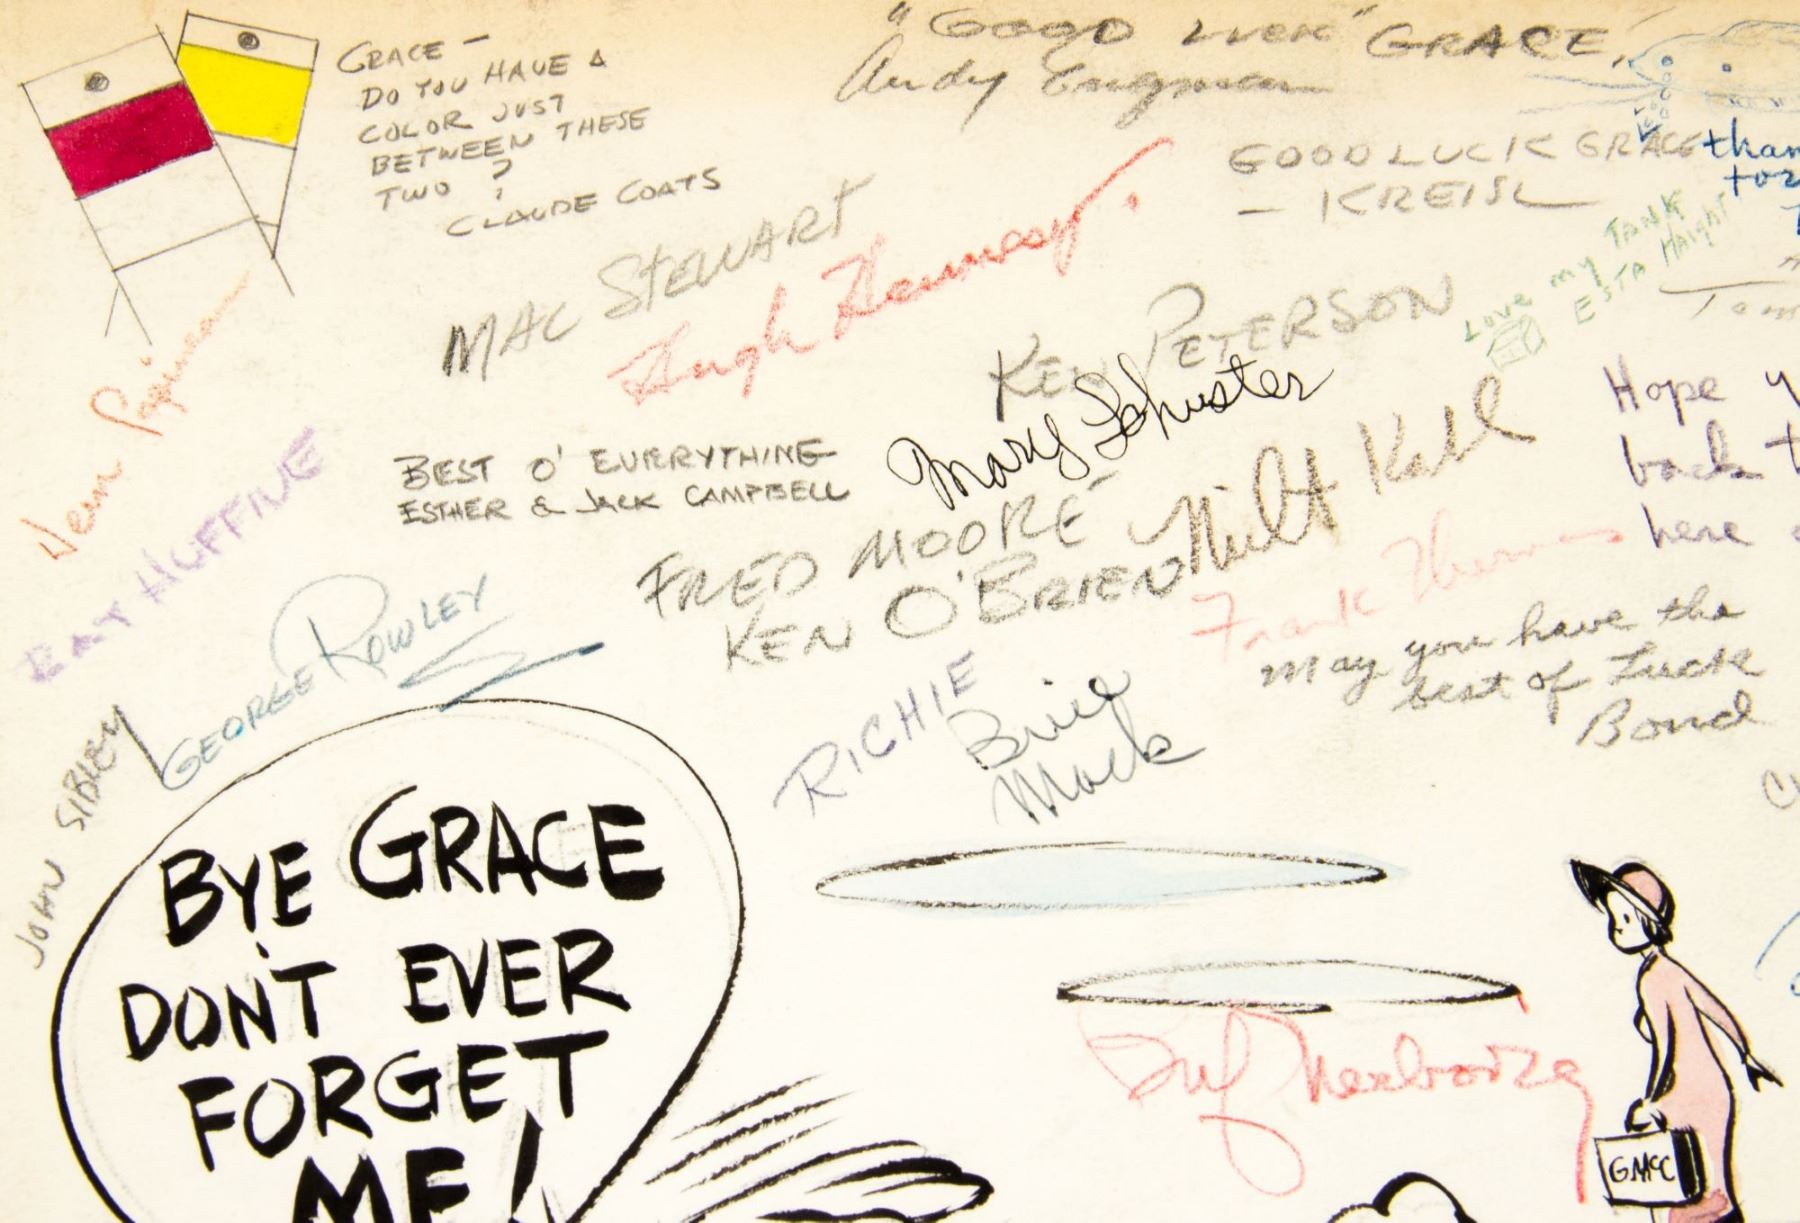 "GOOD LUCK" GRACE,
Andy Engman
GRACE —
DO YOU HAVE A
COLOR JUST
BETWEEN THESE
TWO ?
CLAUDE COATS
GOOD LUCK GRACE
— KREISL
MAC STEWART
Hugh Hennesy.
KEN PETERSON
LOVE my TANK
ESTA HAIGHT
Mary Schuster
Milt Kahl
BEST O' EVERRYTHING
ESTHER & JACK CAMPBELL
RAY HUFFINE
FRED MOORE
KEN O'BRIEN
Frank Thomas
Hope
back
here
May you have the
best of Luck
Bond
GEORGE ROWLEY
JOHN SIBLEY
RICHIE
Brig
Mack
BYE GRACE
DON'T EVER
FORGET
ME!
GMCC